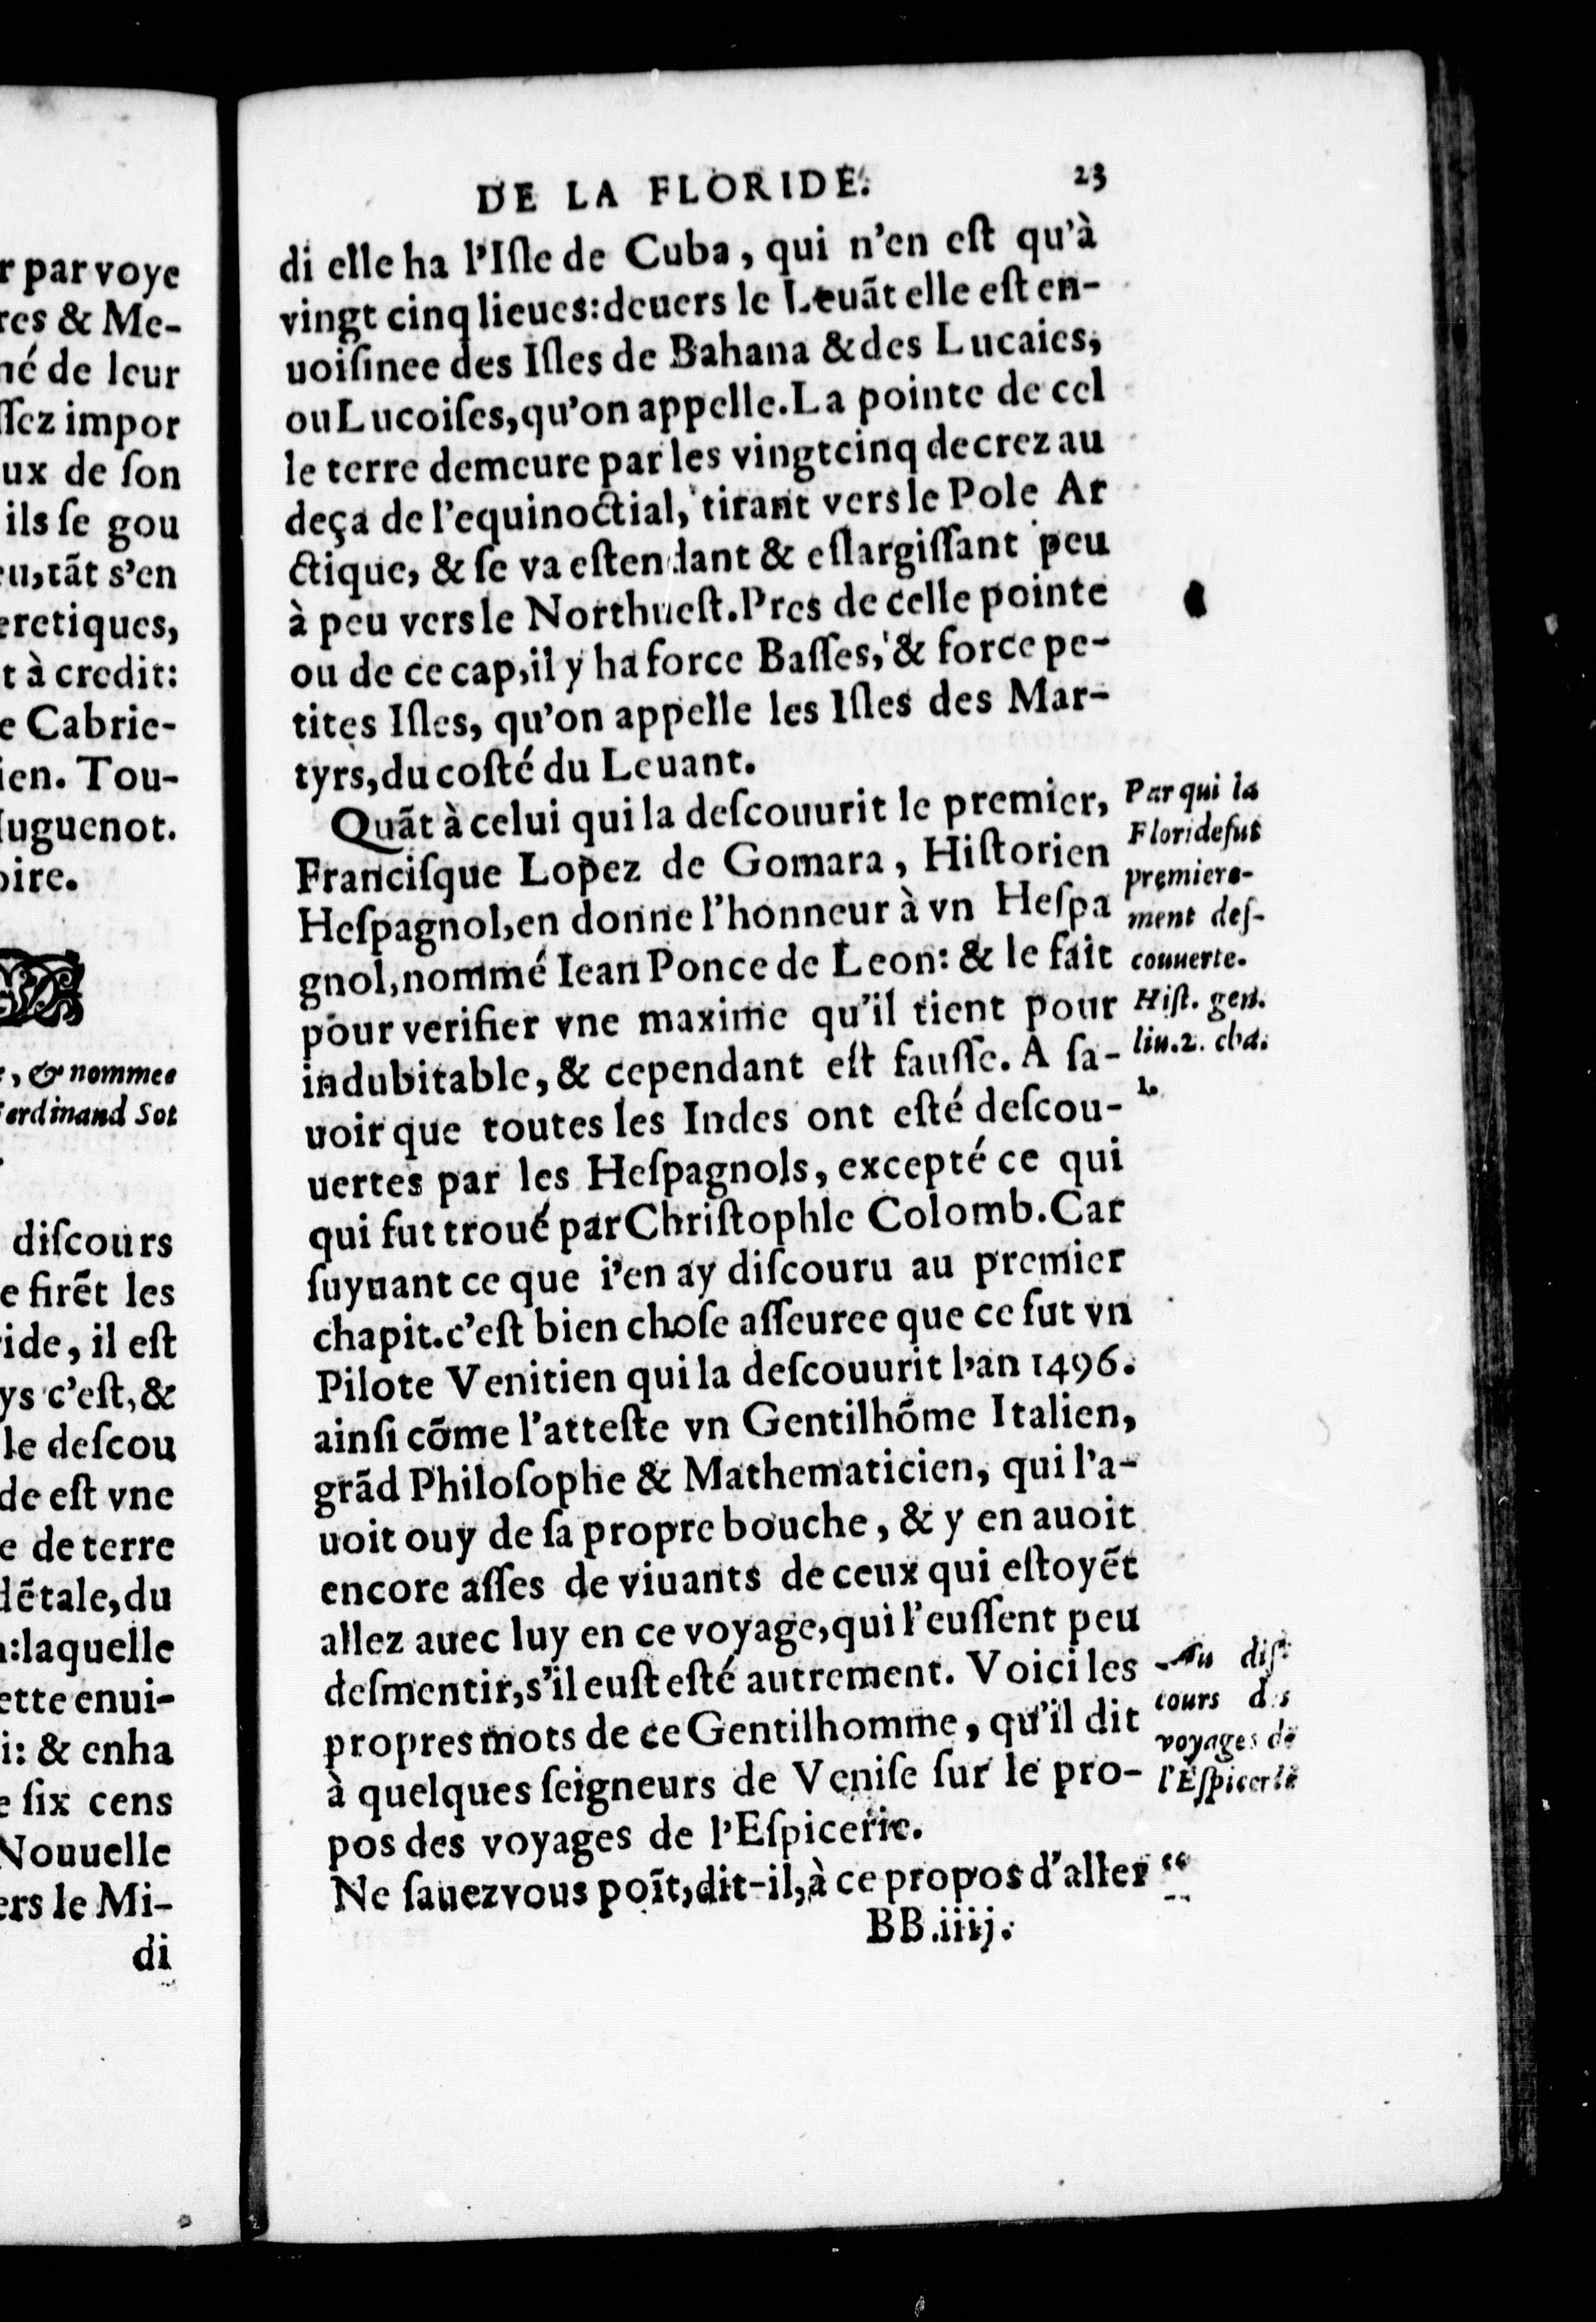 r par voye
res & Me-
né de leur
ſſez impor
ux de ſon
ils ſe gou
eu, tãt s'en
eretiques,
t à credit:
e Cabrie-
ien. Tou-
Huguenot.
oire.
e, & nommee
Ferdinand Sot
diſcours
e firẽt les
ride, il eſt
ys c'eſt, &
le deſcou
de eſt vne
e de terre
dẽtale, du
n: laquelle
ette enui-
i: & enha
e ſix cens
Nouuelle
ers le Mi-
di
DE LA FLORIDE. 23
di elle ha l'Iſle de Cuba, qui n'en eſt qu'à
vingt cinq lieues: deuers le Leuãt elle eſt en-
uoiſinee des Iſles de Bahana & des Lucaies,
ou Lucoiſes, qu'on appelle. La pointe de cel
le terre demeure par les vingtcinq decrez au
deça de l'equinoctial, tirant vers le Pole Ar
ctique, & ſe va eſtendant & eſlargiſſant peu
à peu vers le Northueſt. Pres de celle pointe
ou de ce cap, il y ha force Baſſes, & force pe-
tites Iſles, qu'on appelle les Iſles des Mar-
tyrs, du coſté du Leuant.
Quãt à celui qui la deſcouurit le premier,
Franciſque Lopez de Gomara, Hiſtorien
Heſpagnol, en donne l'honneur à vn Heſpa
gnol, nommé Iean Ponce de Leon: & le fait
pour verifier vne maxime qu'il tient pour
indubitable, & cependant eſt fauſſe. A ſa-
uoir que toutes les Indes ont eſté deſcou-
uertes par les Heſpagnols, excepté ce qui
qui fut troué par Chriſtophle Colomb. Car
ſuyuant ce que i'en ay diſcouru au premier
chapit. c'eſt bien choſe aſſeuree que ce fut vn
Pilote Venitien qui la deſcouurit l'an 1496.
ainſi cõme l'atteſte vn Gentilhõme Italien,
grãd Philoſophe & Mathematicien, qui l'a-
uoit ouy de ſa propre bouche, & y en auoit
encore aſſes de viuants de ceux qui eſtoyẽt
allez auec luy en ce voyage, qui l'euſſent peu
deſmentir, s'il euſt eſté autrement. Voici les
propres mots de ce Gentilhomme, qu'il dit
à quelques ſeigneurs de Veniſe ſur le pro-
pos des voyages de l'Eſpicerie.
Ne ſauez vous poĩt, dit-il, à ce propos d'aller “
BB.iiij.
Par qui la
Floride fut
premiere-
ment deſ-
couuerte.
Hiſt. gen.
liu. 2. cha.
Au diſ-
cours des
voyages de
l'Eſpicerie